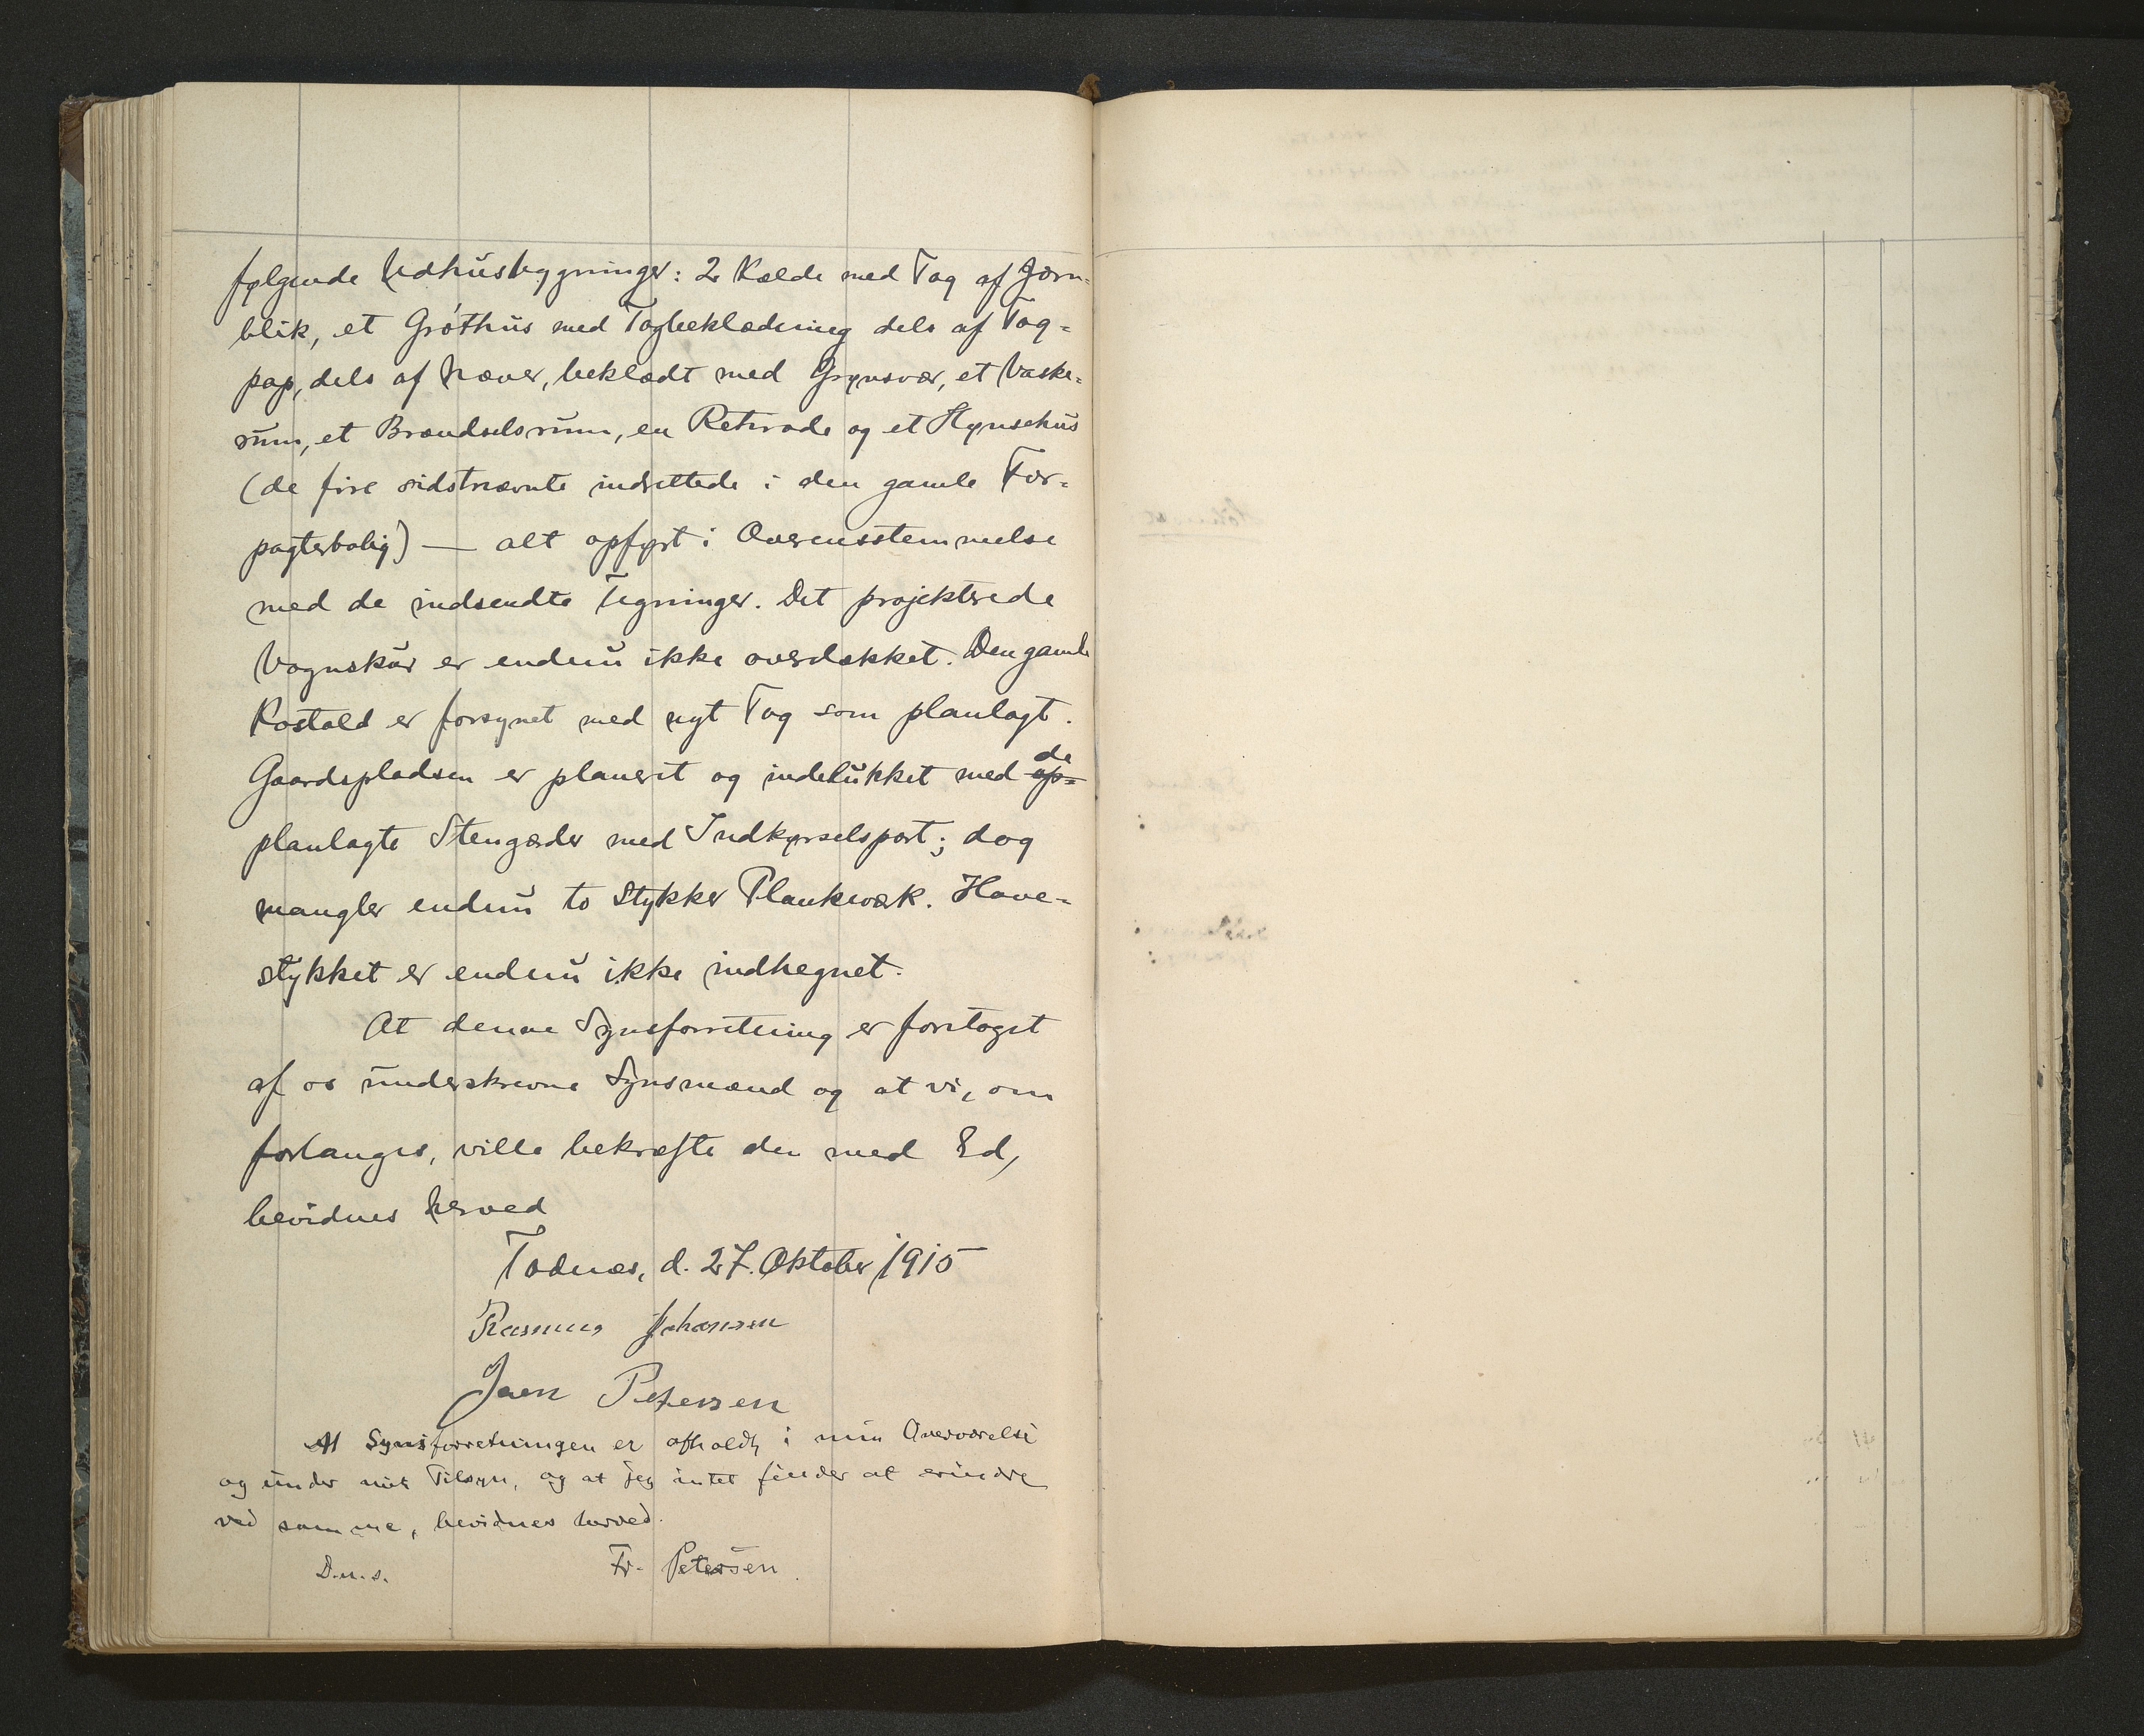 følgende Udhusbygninger: 2 Kælde med Tag af Jærn-
blik, et Gróthus med Tagbeklædning dels af Tag-
pap, dels af Næver, beklædt med Grønsvær, et Vaske-
rum, et Brændselsrum, en Retirade og et Hønsehus
(de fire sidstnævnte indrettede i den gamle For-
pagterbolig) — alt opført i Overensstemmelse
med de indsendte Tegninger. Det projekterede
Vognskur er endnu ikke overdækket. Den gamle
Kostald er forsynet med nyt Tag som planlagt.
Gaardspladsen er planeret og indelukket med de
planlagte Stengærder med Indkørselsport; dog
mangler endnu to Stykker Plankeværk. Have-
stykket er endnu ikke indhegnet.
At denne Synsforretning er foretaget
af os underskrevne Synsmænd og at vi, om
forlanges, ville bekræfte den med Ed,
bevidnes herved
Todnæs, d. 27. Oktober 1915
Rasmus Johansen
Joen Petersen
At Synsforretningen er afholdt i min Overværelse
og under mit Tilsyn, og at jeg intet finder at erindre
ved samme, bevidnes herved.
D.u.s. Fr. Petersen